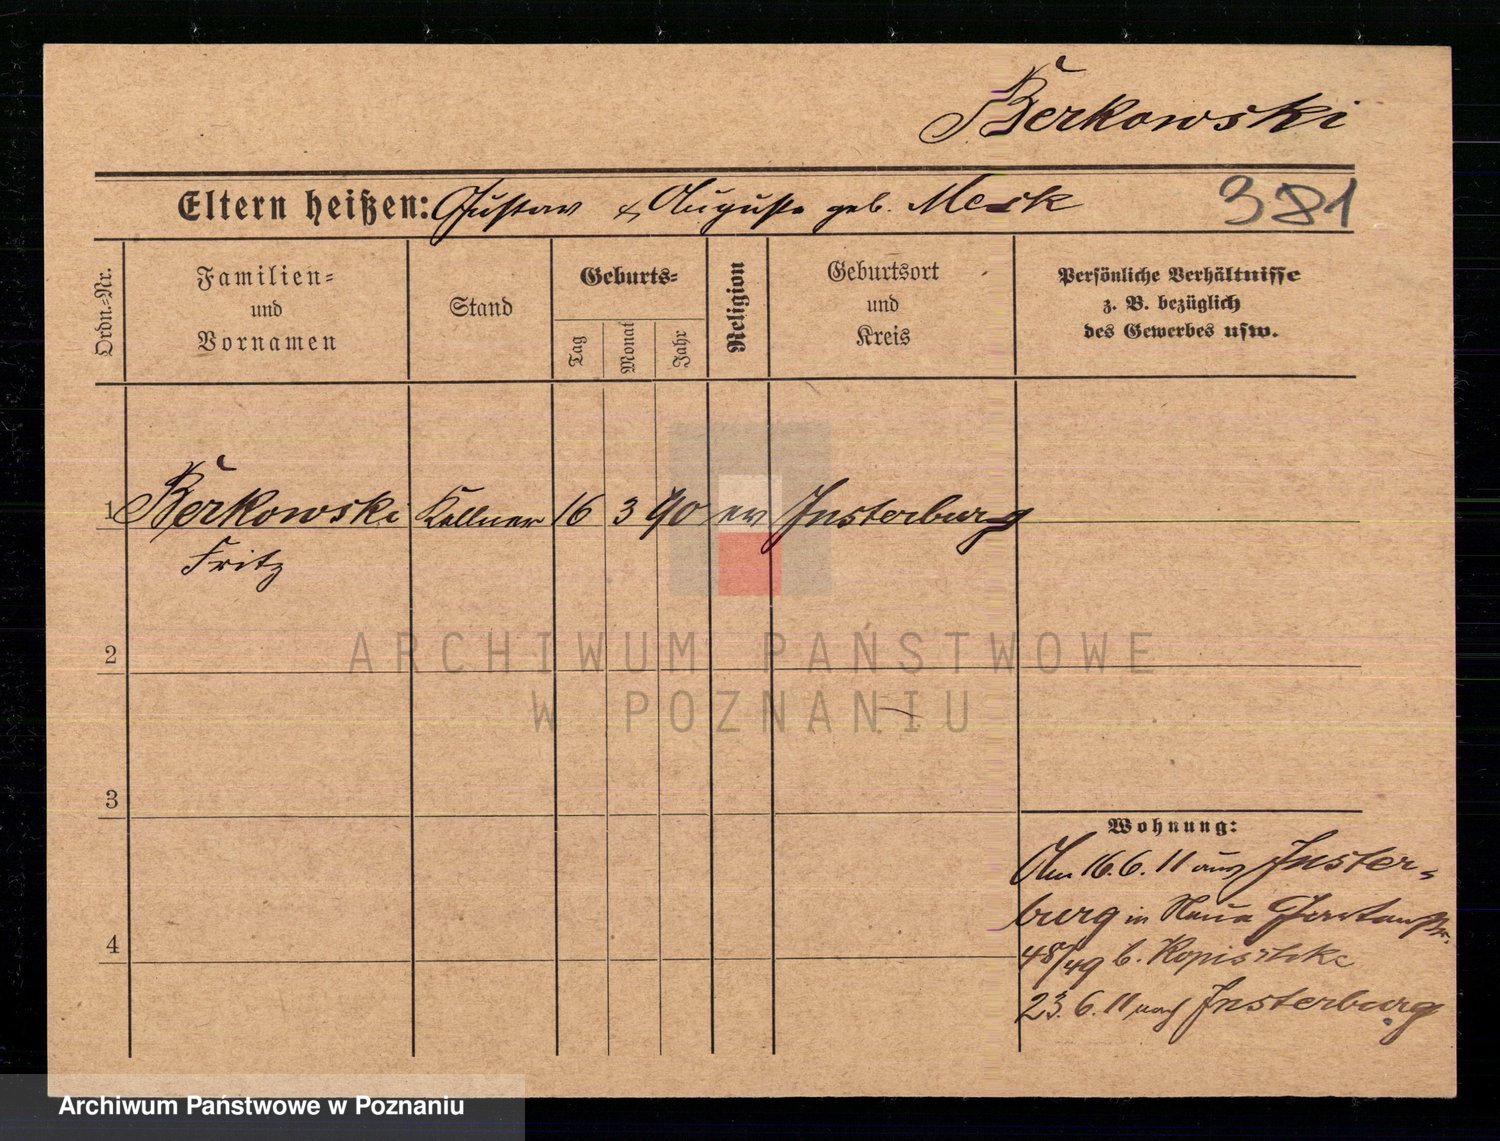 Berkowski
Eltern heißen: Gustav & Auguste geb. Merk
381
Ordn.-Nr.
Familien-
und
Vornamen
Stand
Geburts-
Tag
Monat
Jahr
Religion
Geburtsort
und
Kreis
Persönliche Verhältnisse
z. B. bezüglich
des Gewerbes usw.
1 Berkowski Kellner 16 3 90 ev Insterburg
Fritz
2
ARCHIWUM PAŃSTWOWE
W POZNANIU
3
Wohnung:
Am 16.6.11 aus Inster-
burg in Neue Gartenstr.
4
48/49 b.
23.6.11 nach Insterburg
Archiwum Państwowe w Poznaniu